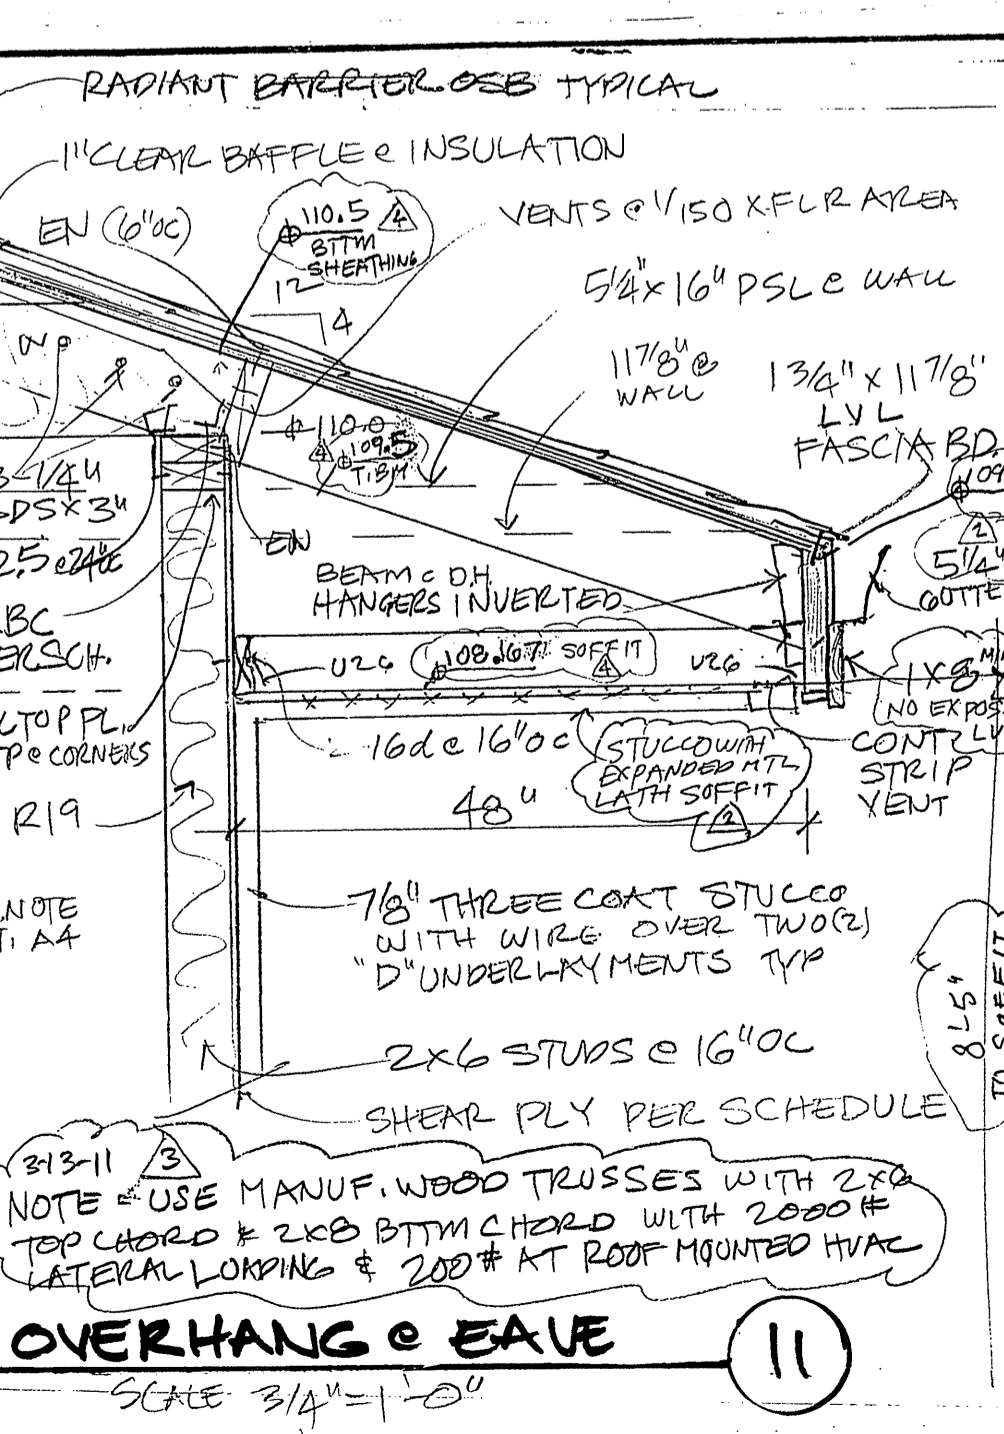 RADIANT BARRIER OSB TYPICAL
1" CLEAR BAFFLE @ INSULATION
EN (6"OC)
110.5 4
BTTM
SHEATHING
VENTS @ 1/150 X FLR AREA
12
4
5 1/4" x 16" PSL @ WALL
11 7/8" @
WALL
1 3/4" X 11 7/8"
LVL
FASCIA BD.
110.0
4 109.5
T.BM
109
3-1/4"
SDS X 3"
2.5 @ 24"OC
2
5 1/4"
GUTTE
EN
BEAM @ D.H.
HANGERS INVERTED
BC
ERSCH.
U26
108.167 SOFFIT
4
U26
1X8
NO EXPOS
TOP PL.
P @ CORNERS
16d @ 16"OC
STUCCO WITH
EXPANDED MTL
LATH SOFFIT
2
CONT.
STRIP
VENT
R19
48"
7/8" THREE COAT STUCCO
WITH WIRE OVER TWO(2)
"D" UNDERLAYMENTS TYP
NOTE
A4
8'-5"
TO SOFFIT
2X6 STUDS @ 16"OC
SHEAR PLY PER SCHEDULE
3-13-11 3
NOTE - USE MANUF. WOOD TRUSSES WITH 2X6
TOP CHORD & 2X8 BTTM CHORD WITH 2000#
LATERAL LOADING & 200# AT ROOF MOUNTED HVAC
OVERHANG @ EAVE
11
SCALE 3/4"=1'-0"